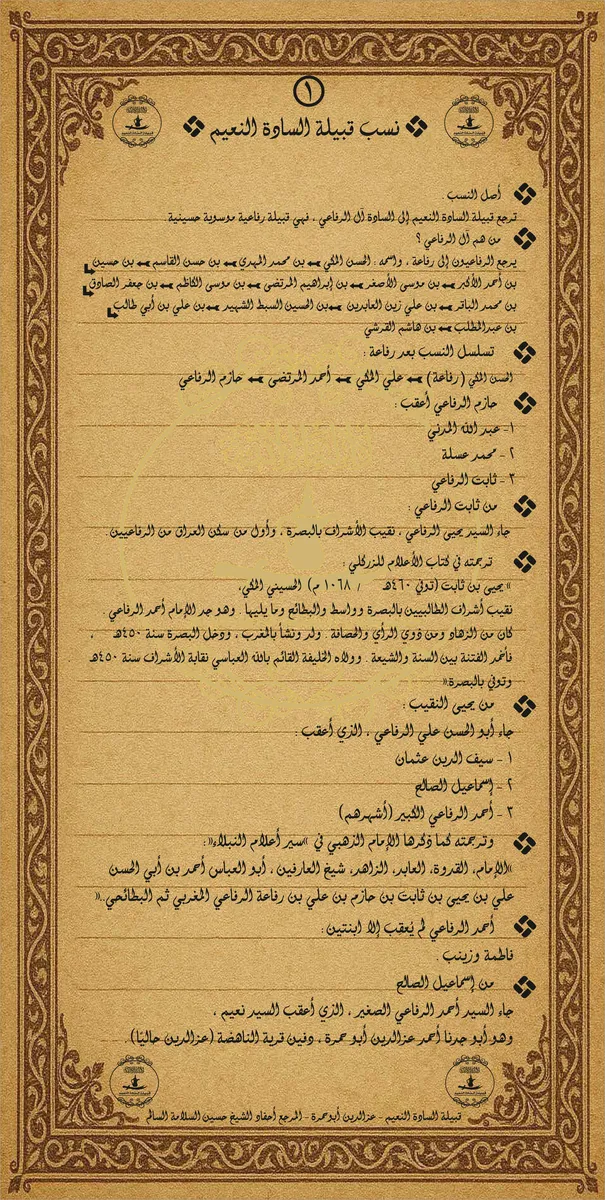 ١
نسب قبيلة السادة النعيم
أصل النسب .
ترجع قبيلة السادة النعيم إلى السادة آل الرفاعي ، فهي قبيلة رفاعية موسوية حسينية.
من هم آل الرفاعي ؟
يرجع الرفاعيون إلى رفاعة ، واسمه : الحسن المكي بن محمد المهدي بن حسن القاسم بن حسين
بن أحمد الأكبر بن موسى الأصغر بن إبراهيم المرتضى بن موسى الكاظم بن جعفر الصادق
بن محمد الباقر بن علي زين العابدين بن الحسين السبط الشهيد بن علي بن أبي طالب
بن عبدالمطلب بن هاشم القرشي
تسلسل النسب بعد رفاعة :
الحسن المكي (رفاعة) علي المكي أحمد المرتضى حازم الرفاعي
حازم الرفاعي أعقب :
١- عبد الله المدني
٢ - محمد عسلة
٣ - ثابت الرفاعي
من ثابت الرفاعي :
جاء السيد يحيى الرفاعي ، نقيب الأشراف بالبصرة ، وأول من سكن العراق من الرفاعيين .
ترجمته في كتاب الأعلام للزركلي :
»يحيى بن ثابت (توفي ٤٦٠هـ / ١٠٦٨ م) الحسيني المكي،
نقيب أشراف الطالبيين بالبصرة وواسط والبطائح وما يليها . وهو جد الإمام أحمد الرفاعي .
كان من الزهاد ومن ذوي الرأي والحصافة . ولد ونشأ بالمغرب ، ودخل البصرة سنة ٤٥٠هـ ،
فأخمد الفتنة بين السنة والشيعة . وولاه الخليفة القائم بالله العباسي نقابة الأشراف سنة ٤٥٠هـ
وتوفي بالبصرة«
من يحيى النقيب :
جاء أبو الحسن علي الرفاعي ، الذي أعقب :
١ - سيف الدين عثمان
٢ - إسماعيل الصالح
٣ - أحمد الرفاعي الكبير (أشهرهم)
وترجمته كما ذكرها الإمام الذهبي في »سير أعلام النبلاء«:
»الإمام، القدوة، العابد، الزاهد، شيخ العارفين ، أبو العباس أحمد بن أبي الحسن
علي بن يحيى بن ثابت بن حازم بن علي بن رفاعة الرفاعي المغربي ثم البطائحي.«
أحمد الرفاعي لم يُعقب إلا ابنتين :
فاطمة وزينب .
من إسماعيل الصالح
جاء السيد أحمد الرفاعي الصغير ، الذي أعقب السيد نعيم ،
وهو أبو جدنا أحمد عزالدين أبو حمرة ، دفين قرية الناهضة (عزالدين حاليًا) .
قبيلة السادة النعيم - عزالدين أبوحمرة - المرجع أحفاد الشيخ حسين السلامة السالم